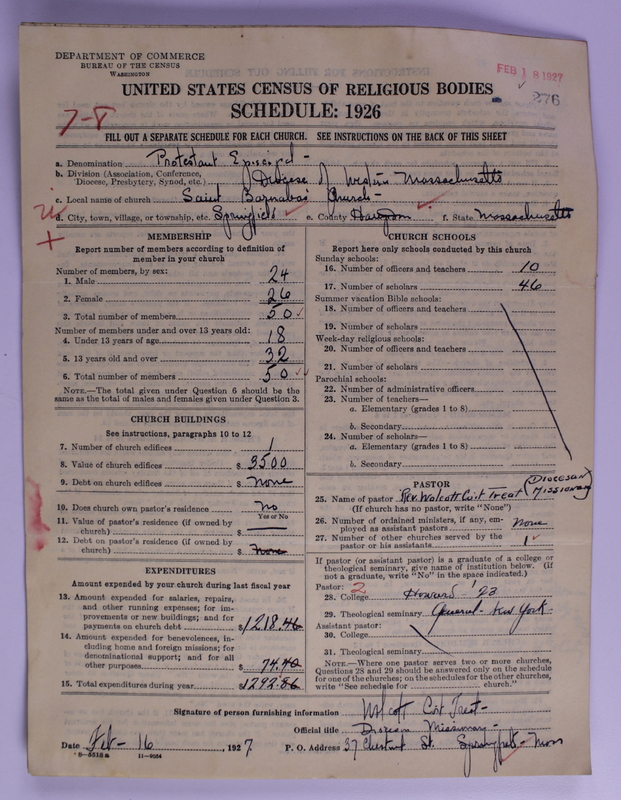 DEPARTMENT OF COMMERCE
BUREAU OF THE CENSUS
WASHINGTON
FEB 18 1927
276
UNITED STATES CENSUS OF RELIGIOUS BODIES
SCHEDULE: 1926
7-8
FILL OUT A SEPARATE SCHEDULE FOR EACH CHURCH. SEE INSTRUCTIONS ON THE BACK OF THIS SHEET
a. Denomination Protestant Episcopal -
b. Division (Association, Conference, Diocese, Presbytery, Synod, etc.) Diocese of Western Massachusetts
c. Local name of church Saint Barnabas Church -
d. City, town, village, or township, etc. Springfield e. County Hampden f. State Massachusetts
MEMBERSHIP
Report number of members according to definition of
member in your church
Number of members, by sex:
1. Male 24
2. Female 26
3. Total number of members 50
Number of members under and over 13 years old:
4. Under 13 years of age 18
5. 13 years old and over 32
6. Total number of members 50
NOTE.—The total given under Question 6 should be the
same as the total of males and females given under Question 3.
CHURCH BUILDINGS
See instructions, paragraphs 10 to 12
7. Number of church edifices 1
8. Value of church edifices $ 3500
9. Debt on church edifices $ None
10. Does church own pastor's residence No
Yes or No
11. Value of pastor's residence (if owned by
church) $
12. Debt on pastor's residence (if owned by
church) $ None
EXPENDITURES
Amount expended by your church during last fiscal year
13. Amount expended for salaries, repairs,
and other running expenses; for im-
provements or new buildings; and for
payments on church debt $1218.46
14. Amount expended for benevolences, in-
cluding home and foreign missions; for
denominational support; and for all
other purposes $ 74.40
15. Total expenditures during year $1292.86
CHURCH SCHOOLS
Report here only schools conducted by this church
Sunday schools:
16. Number of officers and teachers 10
17. Number of scholars 46
Summer vacation Bible schools:
18. Number of officers and teachers
19. Number of scholars
Week-day religious schools:
20. Number of officers and teachers
21. Number of scholars
Parochial schools:
22. Number of administrative officers
23. Number of teachers—
a. Elementary (grades 1 to 8)
b. Secondary
24. Number of scholars—
a. Elementary (grades 1 to 8)
b. Secondary
PASTOR
25. Name of pastor Rev. Wolcott Cutts Treat (DIOCESAN MISSIONARY)
(If church has no pastor, write "None")
26. Number of ordained ministers, if any, em-
ployed as assistant pastors None
27. Number of other churches served by the
pastor or his assistants 1
If pastor (or assistant pastor) is a graduate of a college or
theological seminary, give name of institution below. (If
not a graduate, write "No" in the space indicated.)
Pastor: 2
28. College '23
29. Theological seminary General - New York -
Assistant pastor:
30. College
31. Theological seminary
NOTE.—Where one pastor serves two or more churches,
Questions 28 and 29 should be answered only on the schedule
for one of the churches; on the schedules for the other churches,
write "See schedule for church."
Signature of person furnishing information Wolcott Treat -
Official title Diocesan Missionary -
Date Feb - 16, 1927 P. O. Address 37 Chestnut St. Springfield - Mass
8-5518a 11-9084